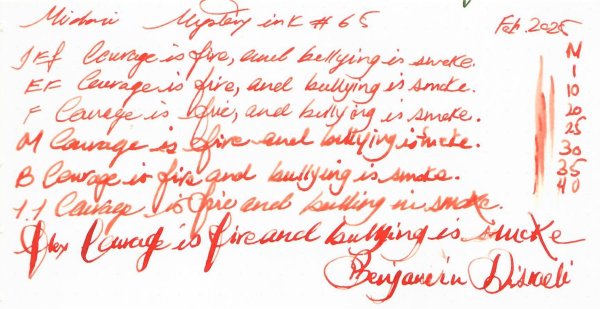 Midori Mystery ink #65 Feb. 2025
JEf Courage is fire, and bullying is smoke.
EF Courage is fire, and bullying is smoke.
F Courage is fire, and bullying is smoke.
M Courage is fire and bullying is smoke.
B Courage is fire and bullying is smoke.
1.1 Courage is fire and bulling is smoke.
flex Courage is fire and bullying is smoke
Benjamin Disraeli
M
1
10
20
25
30
35
40